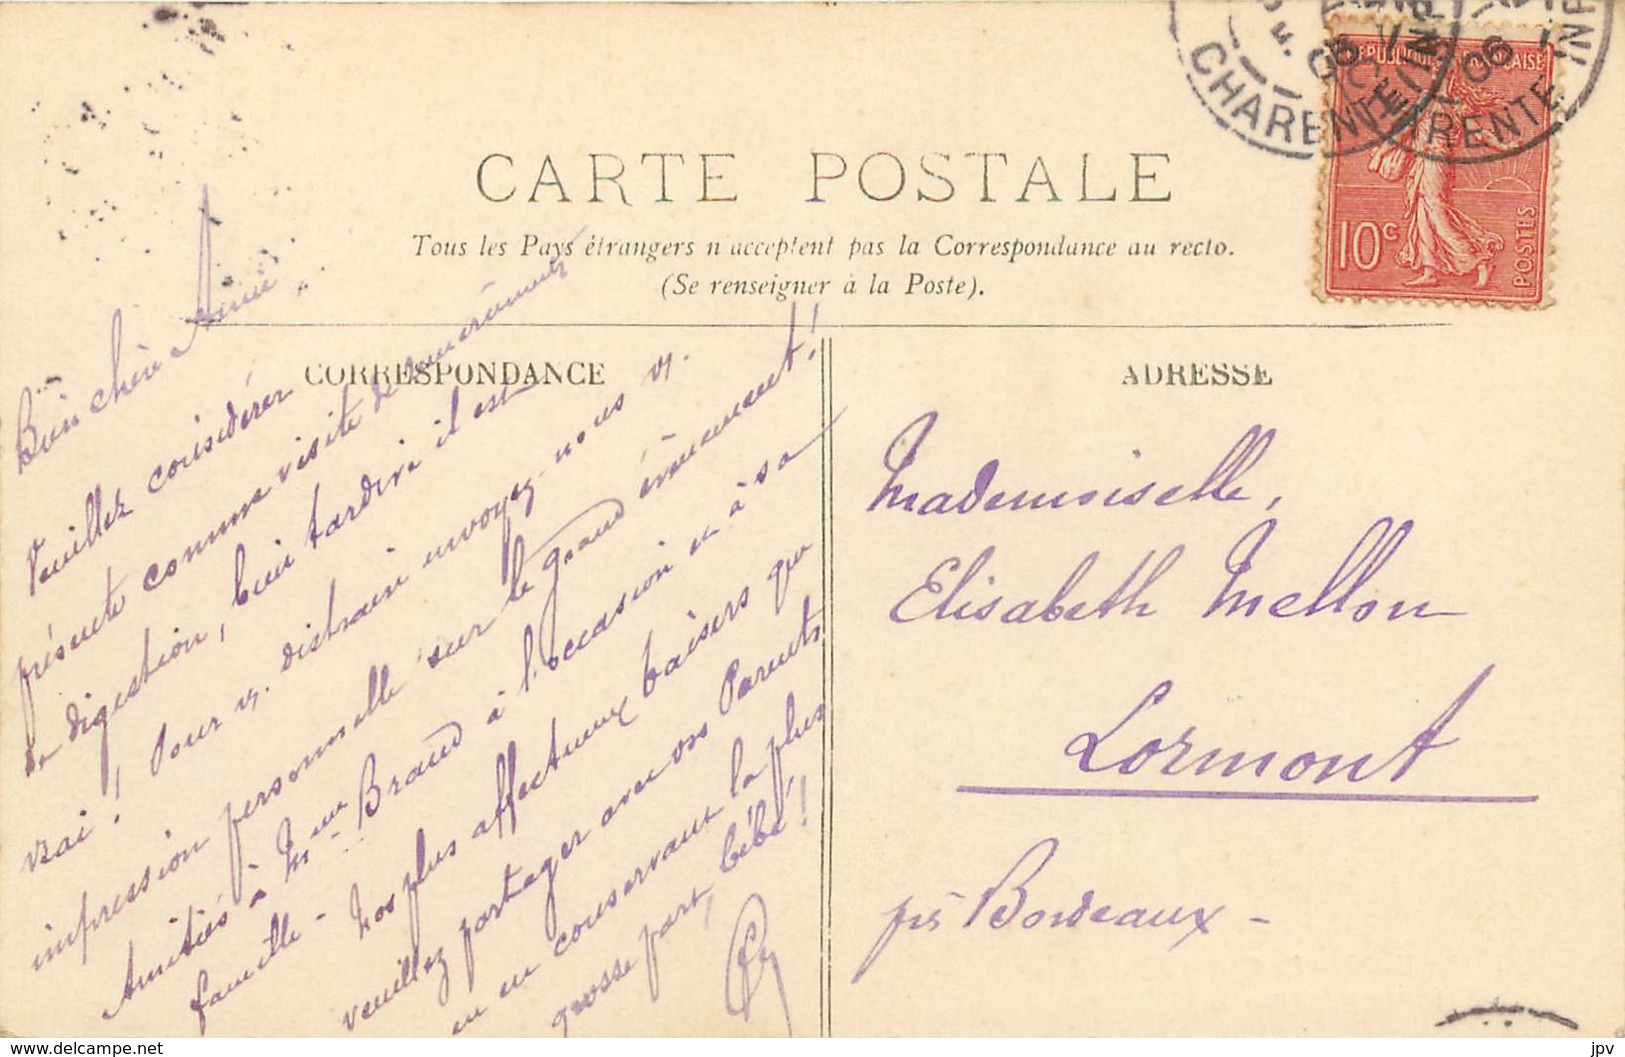 CARTE POSTALE
Tous les Pays étrangers n'acceptent pas la Correspondance au recto.
(Se renseigner à la Poste).
CORRESPONDANCE
ADRESSE
RÉPUBLIQUE FRANÇAISE
10c
POSTES
CHARENTE INF
CHARENTE INF
06
Bien chère Amie,
Veuillez considérer
présente comme visite de
digestion, bien tardive il est
vrai! Pour vs. distraire envoyez-nous vs.
impression personnelle sur le grand évènement!
Amitiés à Mme Braud à l'occasion et à sa
famille - Nos plus affectueux baisers que
veuillez partager avec vos Parents
en en conservant la plus
grosse part, bébé!
Mademoiselle,
Elisabeth Mellon
Lormont
près Bordeaux -
jpv
www.delcampe.net